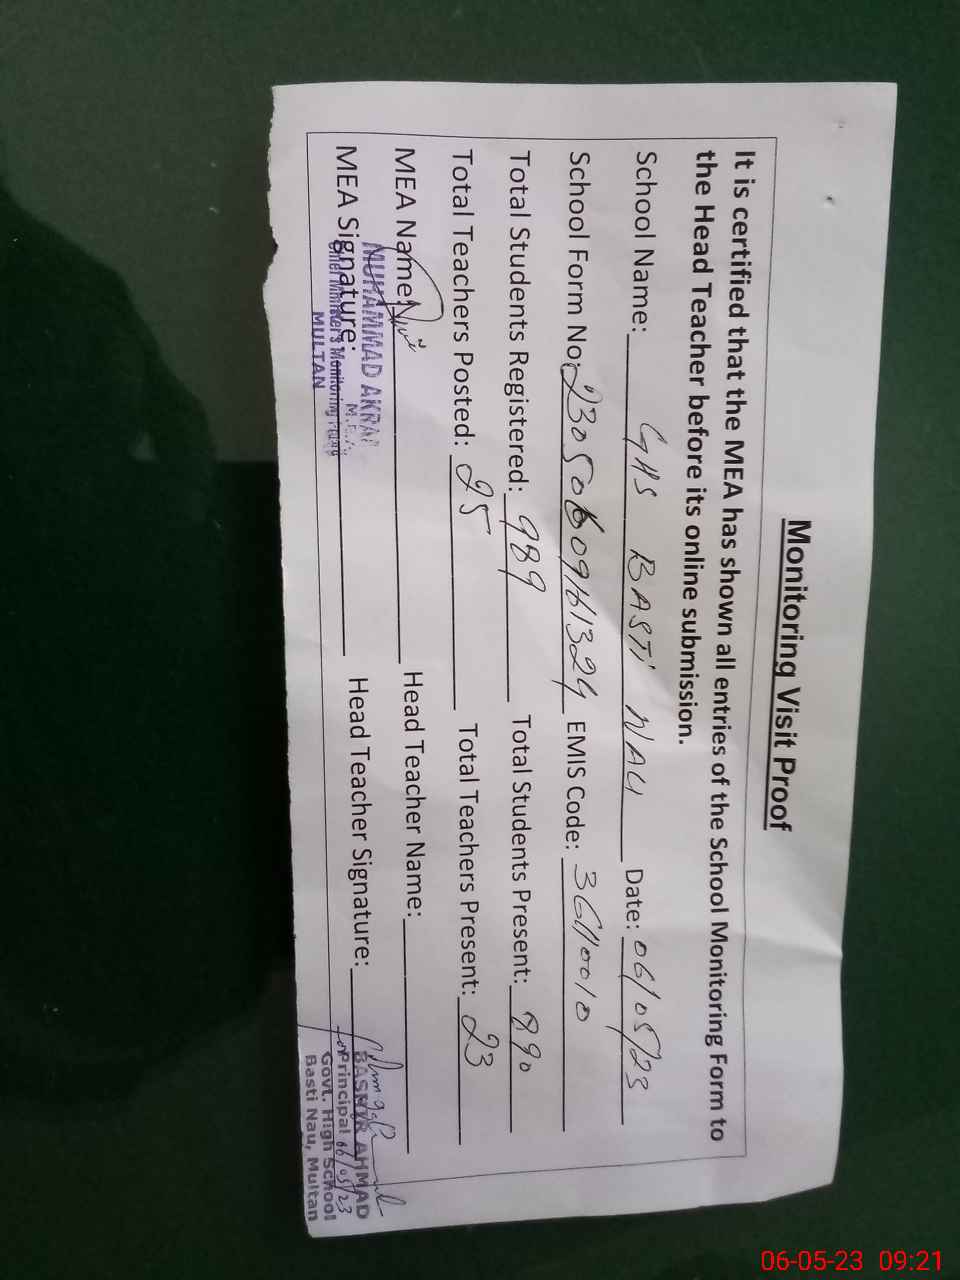 Monitoring Visit Proof
It is certified that the MEA has shown all entries of the School Monitoring Form to
the Head Teacher before its online submission.
School Name: GHS BASTI NAU Date: 06/05/23
School Form No: EMIS Code: 36110010
Total Students Registered: 989 Total Students Present: 890
Total Teachers Posted: 25 Total Teachers Present: 23
MEA Name: Head Teacher Name:
MEA Signature: Head Teacher Signature:
MUHAMMAD AKRAM
M.E.A
Chief Minister's Monitoring Force
MULTAN
BASHIR AHMAD
for Principal 06/05/23
Govt. High School
Basti Nau, Multan
06-05-23 09:21